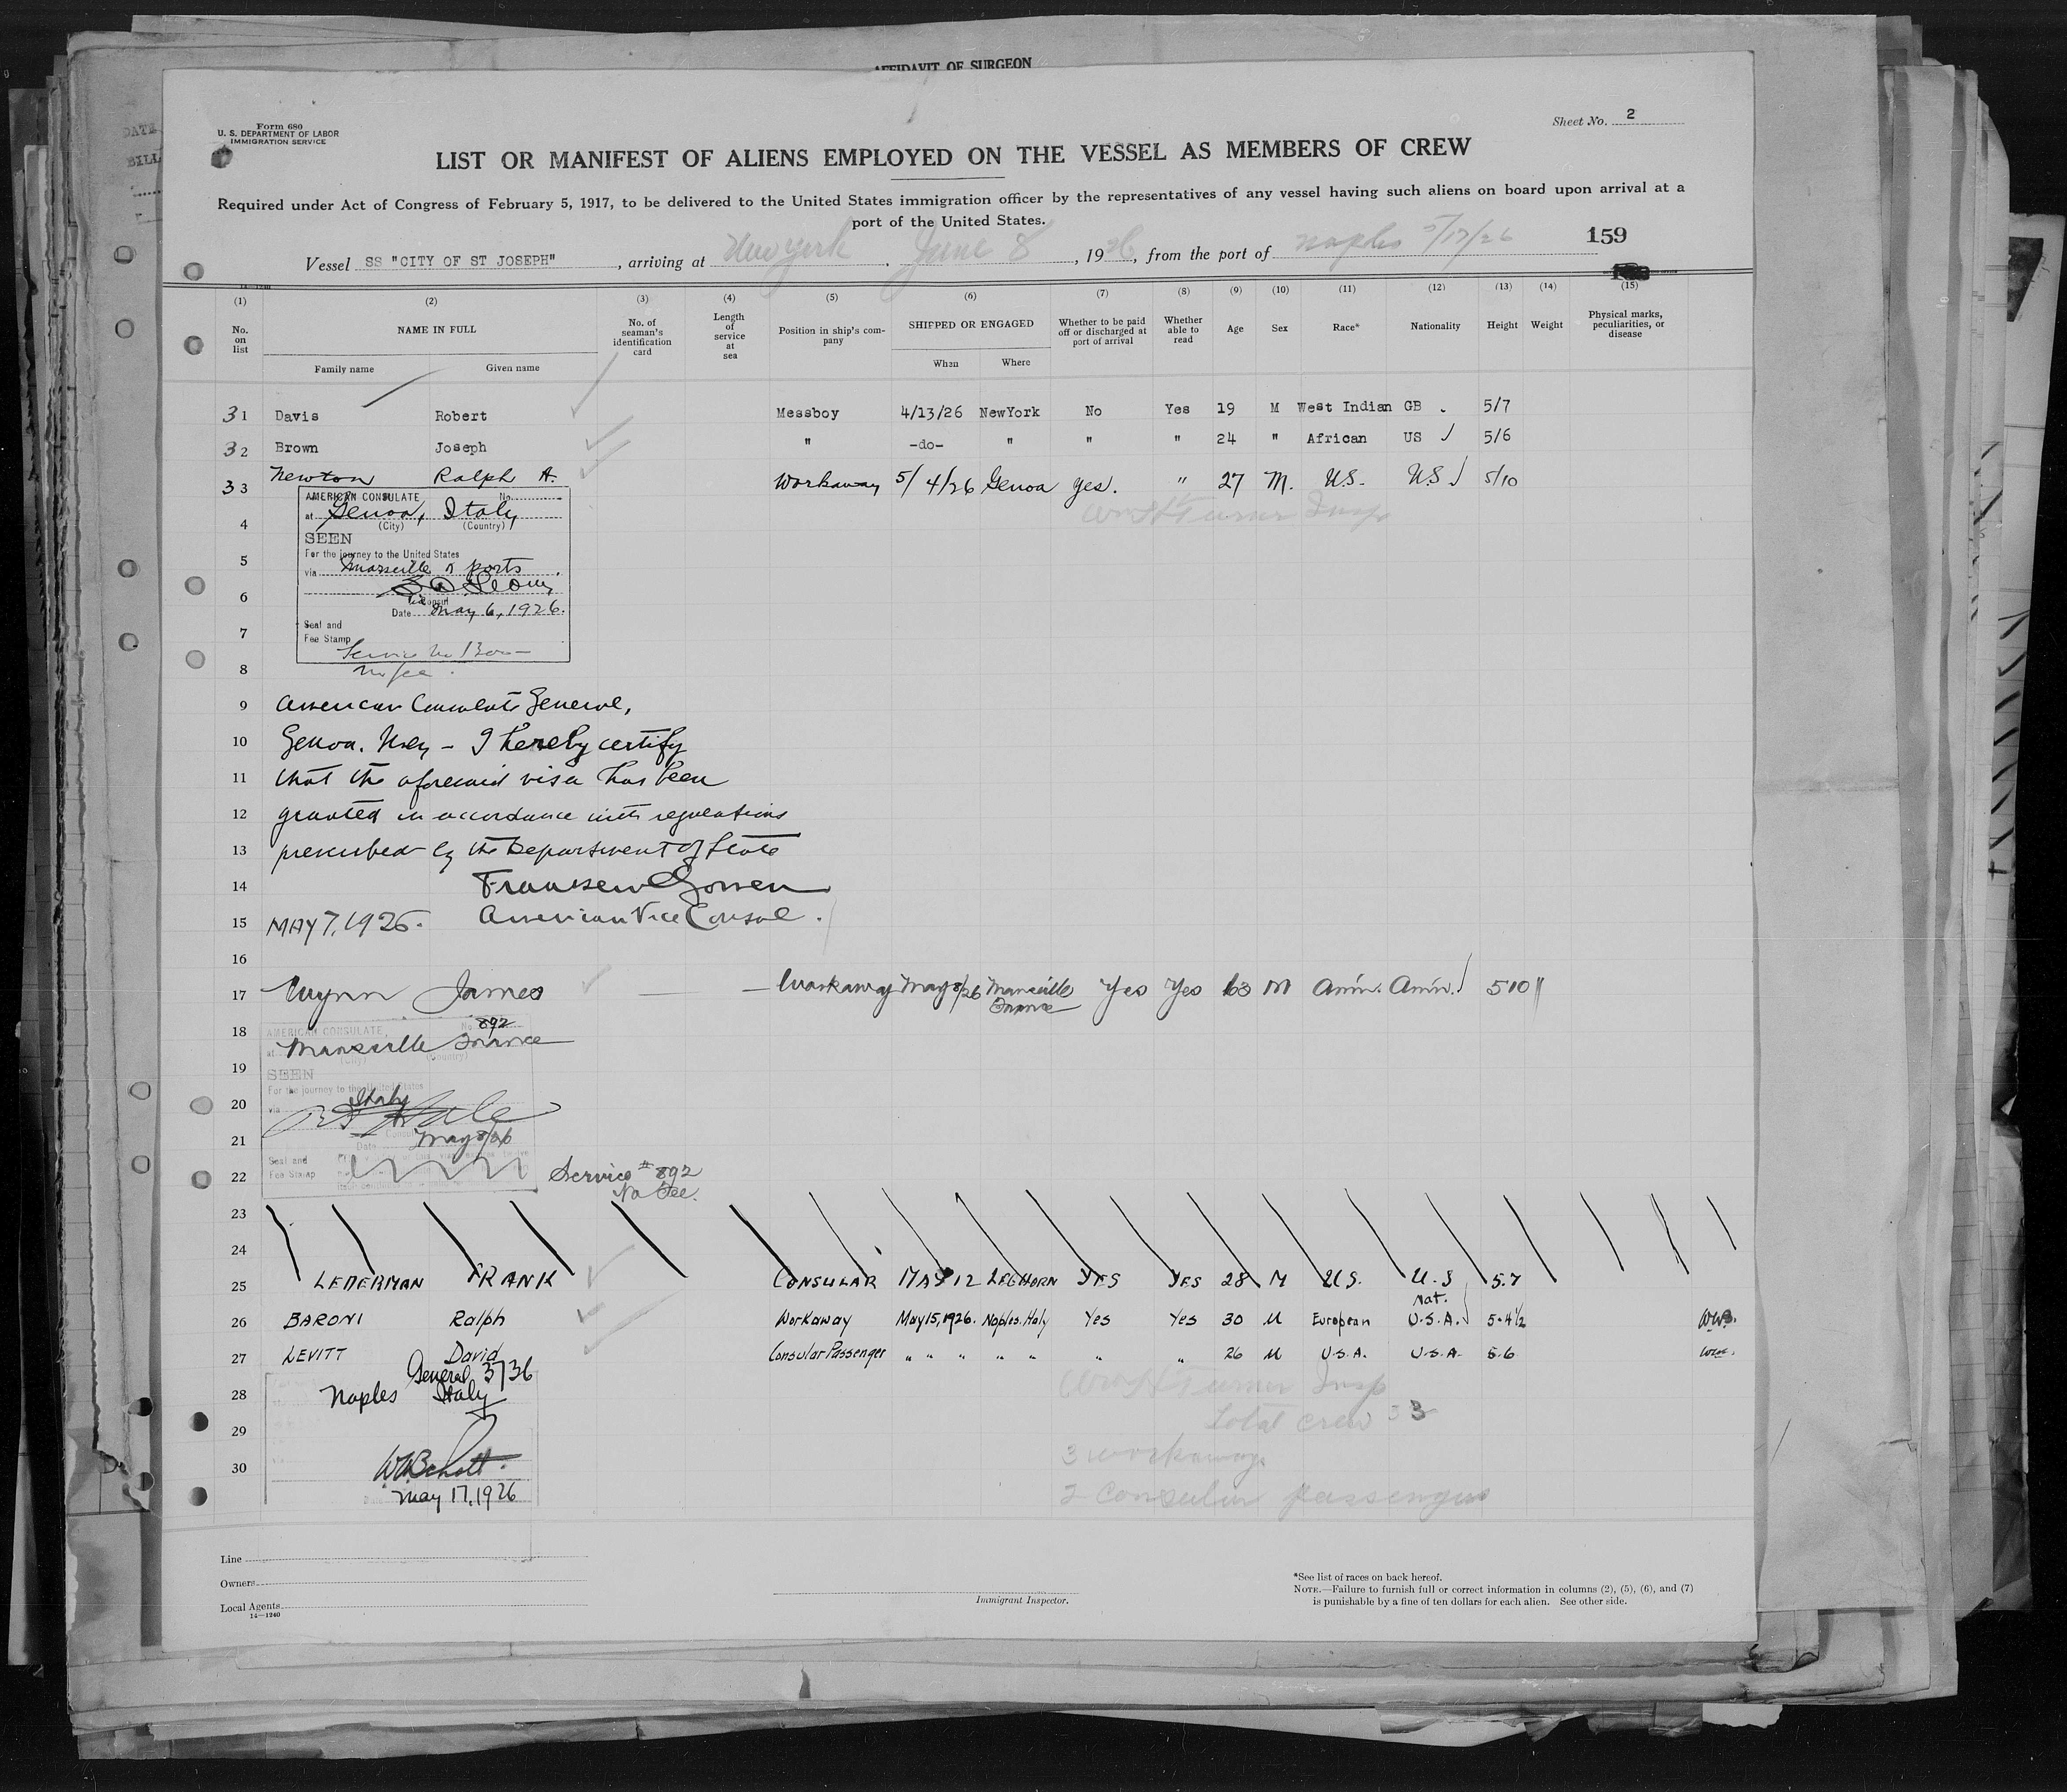 AFFIDAVIT OF SURGEON
DATE
BILL
Form 680
U. S. DEPARTMENT OF LABOR
IMMIGRATION SERVICE
Sheet No. 2
LIST OR MANIFEST OF ALIENS EMPLOYED ON THE VESSEL AS MEMBERS OF CREW
Required under Act of Congress of February 5, 1917, to be delivered to the United States immigration officer by the representatives of any vessel having such aliens on board upon arrival at a
port of the United States.
159
Vessel SS "CITY OF ST JOSEPH", arriving at New York, June 8, 1926, from the port of Naples 5/17/26
(1) (2) (3) (4) (5) (6) (7) (8) (9) (10) (11) (12) (13) (14) (15)
No. on list NAME IN FULL Family name Given name No. of seaman's identification card Length of service at sea Position in ship's company SHIPPED OR ENGAGED When Where Whether to be paid off or discharged at port of arrival Whether able to read Age Sex Race* Nationality Height Weight Physical marks, peculiarities, or disease
31 Davis Robert Messboy 4/13/26 NewYork No Yes 19 M West Indian GB . 5/7
32 Brown Joseph " -do- " " " 24 " African US 5/6
33 Newton Ralph A. Workaway 5/4/26 Genoa yes. " 27 M. U.S. U.S 5/10
AMERICAN CONSULATE No.
4 at Genoa, Italy Wm H Turner Insp
(City) (Country)
SEEN
5 For the journey to the United States
via Marseille & ports
6
Vice Consul
Date May 6, 1926.
7 Seal and
Fee Stamp
8 No fee.
9 American Consulate General,
10 Genoa, Italy – I hereby certify
11 that the aforesaid visa has been
12 granted in accordance with regulations
13 prescribed by the Department of State
14 Franklin C Gowen
15 MAY 7, 1926. American Vice Consul.
16
17 Wynn James — Workaway May 8/26 Marseille France Yes Yes 63 M Amn. Amn. 5 10
AMERICAN CONSULATE, No. 892
18 at Marseille France
(City) (Country)
19 SEEN
For the journey to the United States
20 via Italy
Consul
21 Date May 8/26
Seal and
22 Fee Stamp Service # 892
No Fee.
23
24
25 LEDERMAN FRANK CONSULAR MAY 12 LEGHORN YES YES 28 M U.S. U.S 5.7
26 BARONI Ralph Workaway May 15, 1926. Naples. Italy Yes Yes 30 M European Nat. U.S.A. 5-4½ W.W.S.
27 LEVITT David Consular Passenger " " " " " " " 26 M U.S.A. U.S.A. 5.6
General 3736
28 Naples Italy Wm H Turner Insp
29 Total crew 33
30 3 workaways
May 17, 1926
2 Consular passengers
Line
Owners
Local Agents
14—1240
Immigrant Inspector.
*See list of races on back hereof.
NOTE.—Failure to furnish full or correct information in columns (2), (5), (6), and (7)
is punishable by a fine of ten dollars for each alien. See other side.